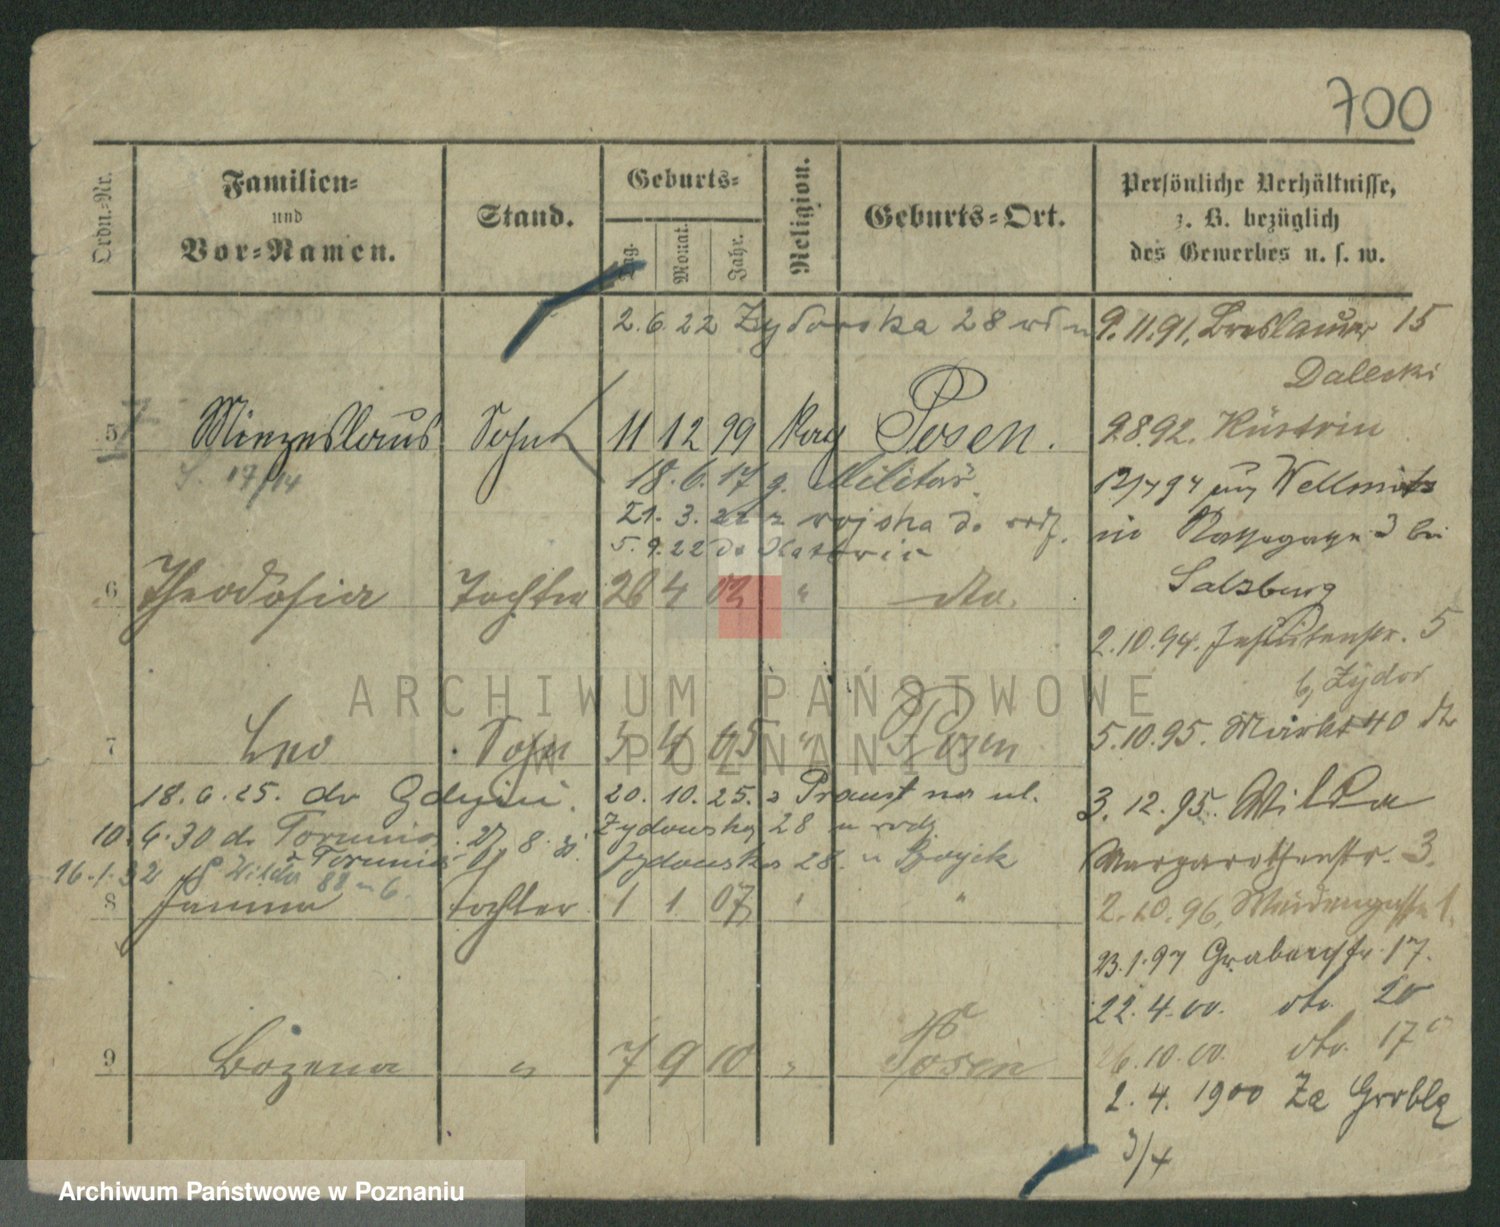 700
Ordn.-Nr.
Familien-
und
Vor-Namen.
Stand.
Geburts-
Tag.
Monat.
Jahr.
Religion.
Geburts-Ort.
Persönliche Verhältnisse,
z. B. bezüglich
des Gewerbes u. s. w.
2. 6. 22 Żydowska 28
9. 11. 91. Breslauer 15
Dalecki
5 Miezeslaus Sohn 11 12 99 Posen.
9.8.92. Küstrin
17/14
18. 6. 17 g. Militär
21. 3. 22 z wojska do rodz.
5. 9. 22 do
bei
Salzburg
6 Theodosia Tochter 26 4 03 " dto.
2. 10. 94. Jesuitenstr. 5
b. Zydor
7 Leo Sohn 5 4 05 " Posen
5. 10. 95. Markt 40
18. 6. 25. do Gdyni. 20. 10. 25. z Praust na ul.
3. 12. 95. Wilda
10. 6. 30 do Torunia Żydowską 28 u rodz.
16. 1. 32 z Torunia Żydowska 28. u
Margarethenstr. 3.
8 Janina Tochter 1 1 07 " "
2. 10. 96, Weidengasse 1.
23. 1. 97 Grabenstr. 17.
22. 4. 00. dto. 20
9 Bożena " 7 9 10 " Posen
26. 10. 00. dto. 17
2. 4. 1900 Za Groblą
3/4
ARCHIWUM PAŃSTWOWE
W POZNANIU
Archiwum Państwowe w Poznaniu